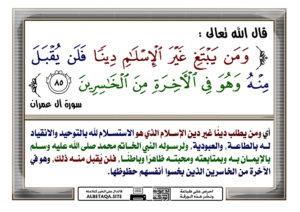 قال الله تعالى :
﴿ وَمَن يَبْتَغِ غَيْرَ الْإِسْلَامِ دِينًا فَلَن يُقْبَلَ
مِنْهُ وَهُوَ فِي الْآخِرَةِ مِنَ الْخَاسِرِينَ ٨٥ ﴾
سورة آل عمران
أي ومن يطلب دينًا غير دين الإسلام الذي هو الاستسلام لله بالتوحيد والانقياد
له بالطاعة، والعبودية، ولرسوله النبي الخاتم محمد صلى الله عليه وسلم
بالإيمان به وبمتابعته ومحبته ظاهرًا وباطنًا، فلن يقبل منه ذلك، وهو في
الآخرة من الخاسرين الذين بخسوا أنفسهم حظوظها.
احرص على طباعة
ونشر هذه الورقة
ALBETAQA.SITE